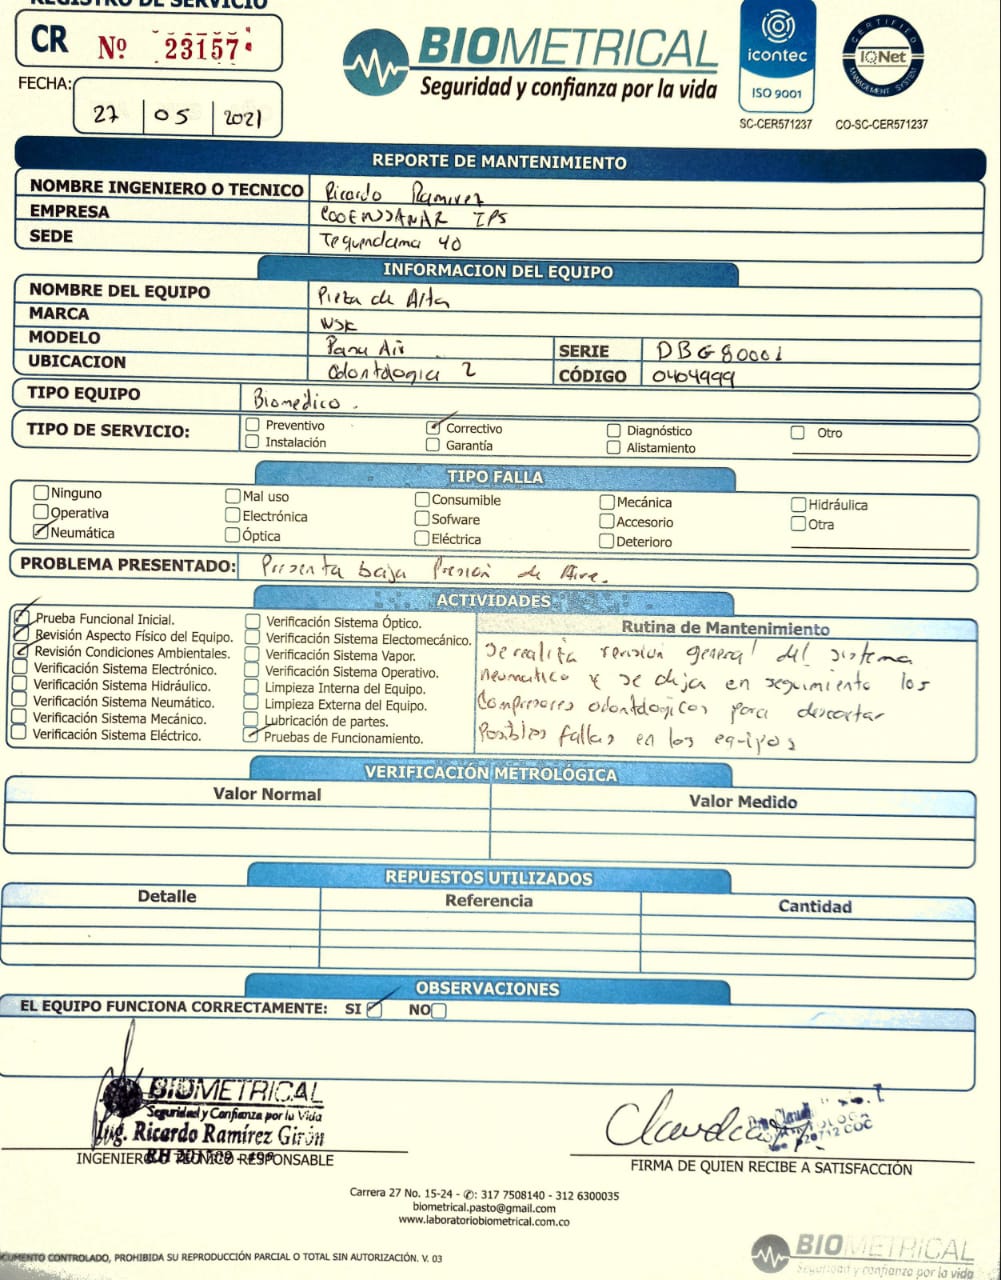 REGISTRO DE SERVICIO
CR Nº 23157
FECHA: 27 | 05 | 2021
BIOMETRICAL
Seguridad y confianza por la vida
icontec
ISO 9001
SC-CER571237
CERTIFIED
IQNet
MANAGEMENT SYSTEM
CO-SC-CER571237
REPORTE DE MANTENIMIENTO
NOMBRE INGENIERO O TECNICO Ricardo Ramirez
EMPRESA COOEMSSANAR IPS
SEDE Tequendama 40
INFORMACION DEL EQUIPO
NOMBRE DEL EQUIPO Pieza de Alta
MARCA NSK
MODELO Pana Air SERIE DBG80001
UBICACION Odontologia 2 CÓDIGO 0404999
TIPO EQUIPO Biomedico.
TIPO DE SERVICIO:
Preventivo Correctivo Diagnóstico Otro
Instalación Garantía Alistamiento
TIPO FALLA
Ninguno Mal uso Consumible Mecánica Hidráulica
Operativa Electrónica Sofware Accesorio Otra
Neumática Óptica Eléctrica Deterioro
PROBLEMA PRESENTADO: Presenta baja Presion de Aire.
ACTIVIDADES
Prueba Funcional Inicial.
Revisión Aspecto Físico del Equipo.
Revisión Condiciones Ambientales.
Verificación Sistema Electrónico.
Verificación Sistema Hidráulico.
Verificación Sistema Neumático.
Verificación Sistema Mecánico.
Verificación Sistema Eléctrico.
Verificación Sistema Óptico.
Verificación Sistema Electomecánico.
Verificación Sistema Vapor.
Verificación Sistema Operativo.
Limpieza Interna del Equipo.
Limpieza Externa del Equipo.
Lubricación de partes.
Pruebas de Funcionamiento.
Rutina de Mantenimiento
Se realiza revision general del sistema
neumatico y se deja en seguimiento los
Compresores odontologicos para descartar
Posibles fallas en los equipos
VERIFICACIÓN METROLÓGICA
Valor Normal Valor Medido
REPUESTOS UTILIZADOS
Detalle Referencia Cantidad
OBSERVACIONES
EL EQUIPO FUNCIONA CORRECTAMENTE: SI NO
BIOMETRICAL
Seguridad y Confianza por la Vida
Ing. Ricardo Ramírez Girón
INGENIERO O TECNICO RESPONSABLE
Claudia
FIRMA DE QUIEN RECIBE A SATISFACCIÓN
Carrera 27 No. 15-24 - ✆: 317 7508140 - 312 6300035
biometrical.pasto@gmail.com
www.laboratoriobiometrical.com.co
DOCUMENTO CONTROLADO, PROHIBIDA SU REPRODUCCIÓN PARCIAL O TOTAL SIN AUTORIZACIÓN. V. 03
BIOMETRICAL
Seguridad y confianza por la vida